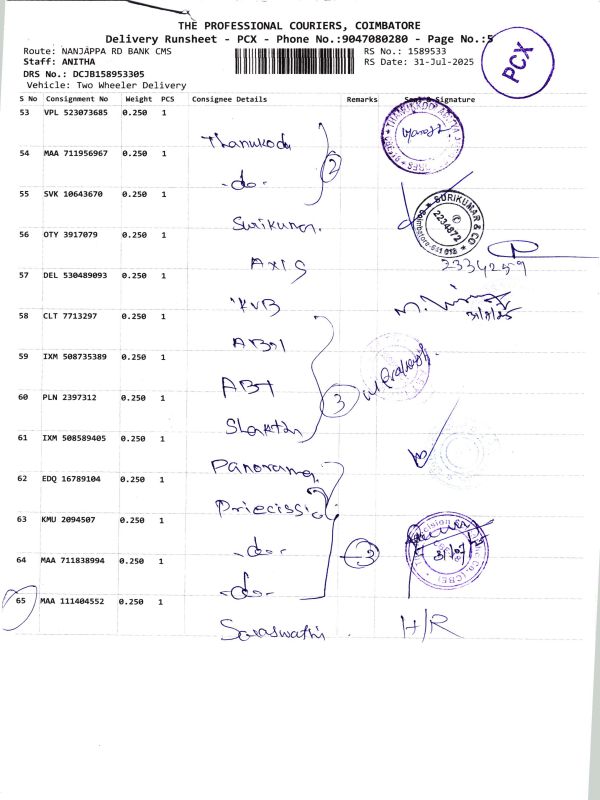 THE PROFESSIONAL COURIERS, COIMBATORE
Delivery Runsheet - PCX - Phone No.:9047080280 - Page No.:5
Route: NANJAPPA RD BANK CMS RS No.: 1589533
Staff: ANITHA RS Date: 31-Jul-2025
DRS No.: DCJB158953305
Vehicle: Two Wheeler Delivery
PCX
S No Consignment No Weight PCS Consignee Details Remarks Seal & Signature
53 VPL 523073685 0.250 1
Thanukodi
54 MAA 711956967 0.250 1
-do-
2
55 SVK 10643670 0.250 1
Surikumar.
SURIKUMAR & CO
2234872
Coimbatore-641 018
56 OTY 3917079 0.250 1
AXIS
2334259
57 DEL 530489093 0.250 1
KVB
31/7/25
58 CLT 7713297 0.250 1
59 IXM 508735389 0.250 1
ABT
60 PLN 2397312 0.250 1
3
Shakthi
61 IXM 508589405 0.250 1
Panorama
62 EDQ 16789104 0.250 1
Priecission
63 KMU 2094507 0.250 1
-do-
3
31/07
64 MAA 711838994 0.250 1
-do-
65 MAA 111404552 0.250 1
Saraswathi
H/R